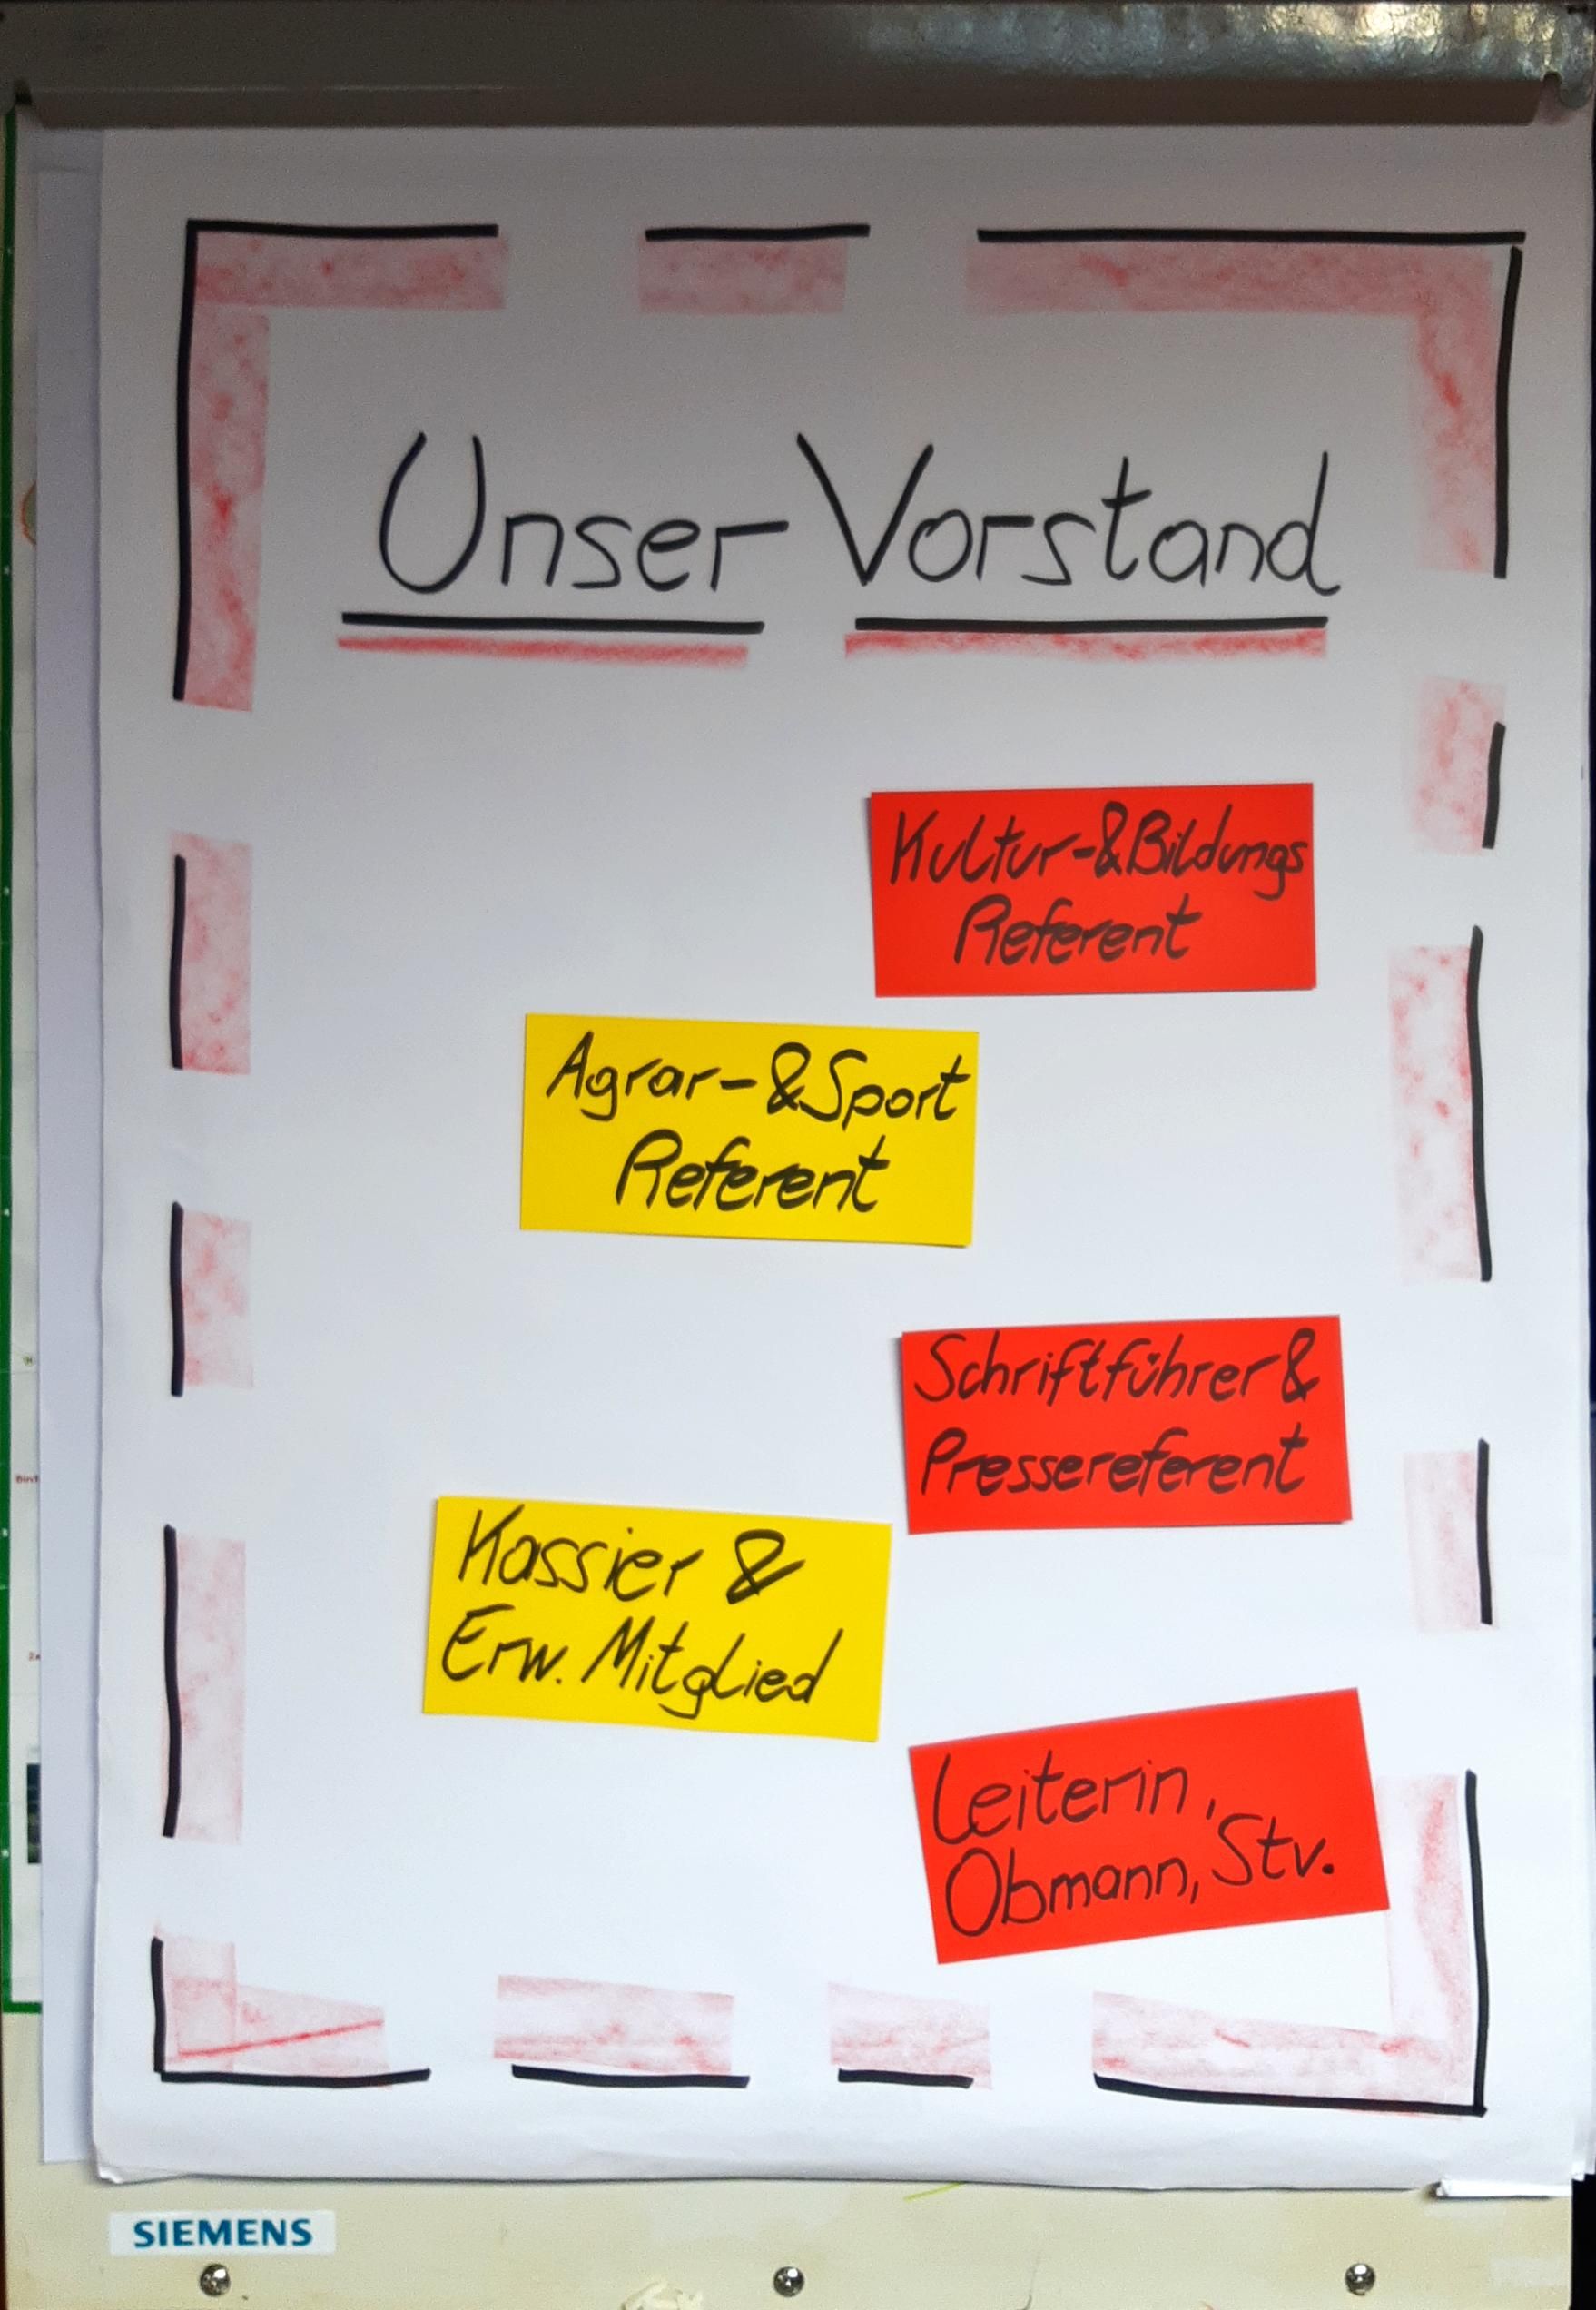 Unser Vorstand
Kultur-&Bildungs
Referent
Agrar-&Sport
Referent
Schriftführer &
Pressereferent
Kassier &
Erw. Mitglied
Leiterin,
Obmann, Stv.
SIEMENS